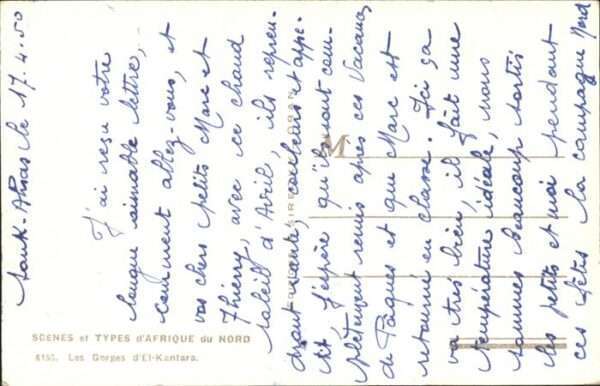 Souk-Ahras le 17.4.50
J'ai reçu votre
longue aimable lettre,
comment allez-vous, et
vos chers petits Marc et
Thierry, avec ce chaud
soleil d'Avril, ils repren-
dront santé, couleurs et appé-
tit, j'espère qu'ils sont com-
plètement remis après ces Vacances
de Pâques et que Marc est
retourné en classe. Ici ça
va très bien, il fait une
température idéale, nous
sommes beaucoup sortis
les petits et moi pendant
ces fêtes la campagne Nord
M
SCENES et TYPES d'AFRIQUE du NORD
6150. Les Gorges d'El-Kantara.